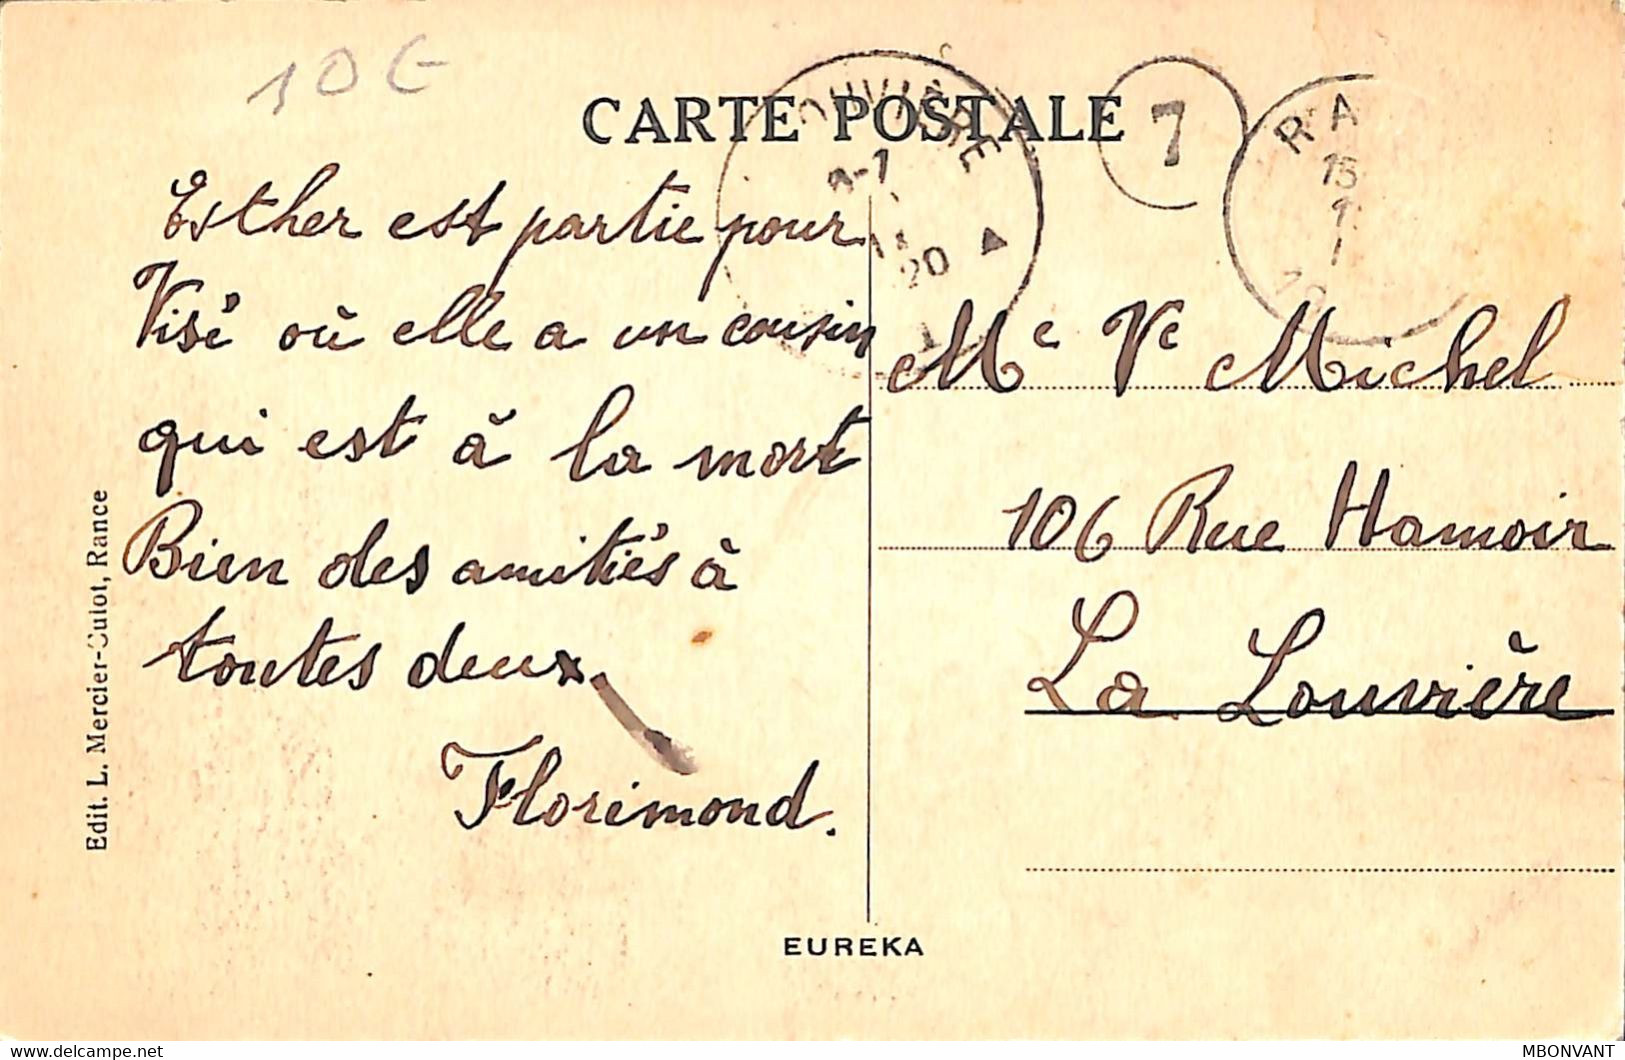 10 €
CARTE POSTALE
OUVIÈRE
20
7
RA
15
1
Esther est partie pour
Visé où elle a un cousin
qui est à la mort
Bien des amitiés à
toutes deux.
Florimond.
Me Ve Michel
106 Rue Hamoir
La Louvière
Edit. L. Mercier-Culot, Rance
EUREKA
MBONVANT